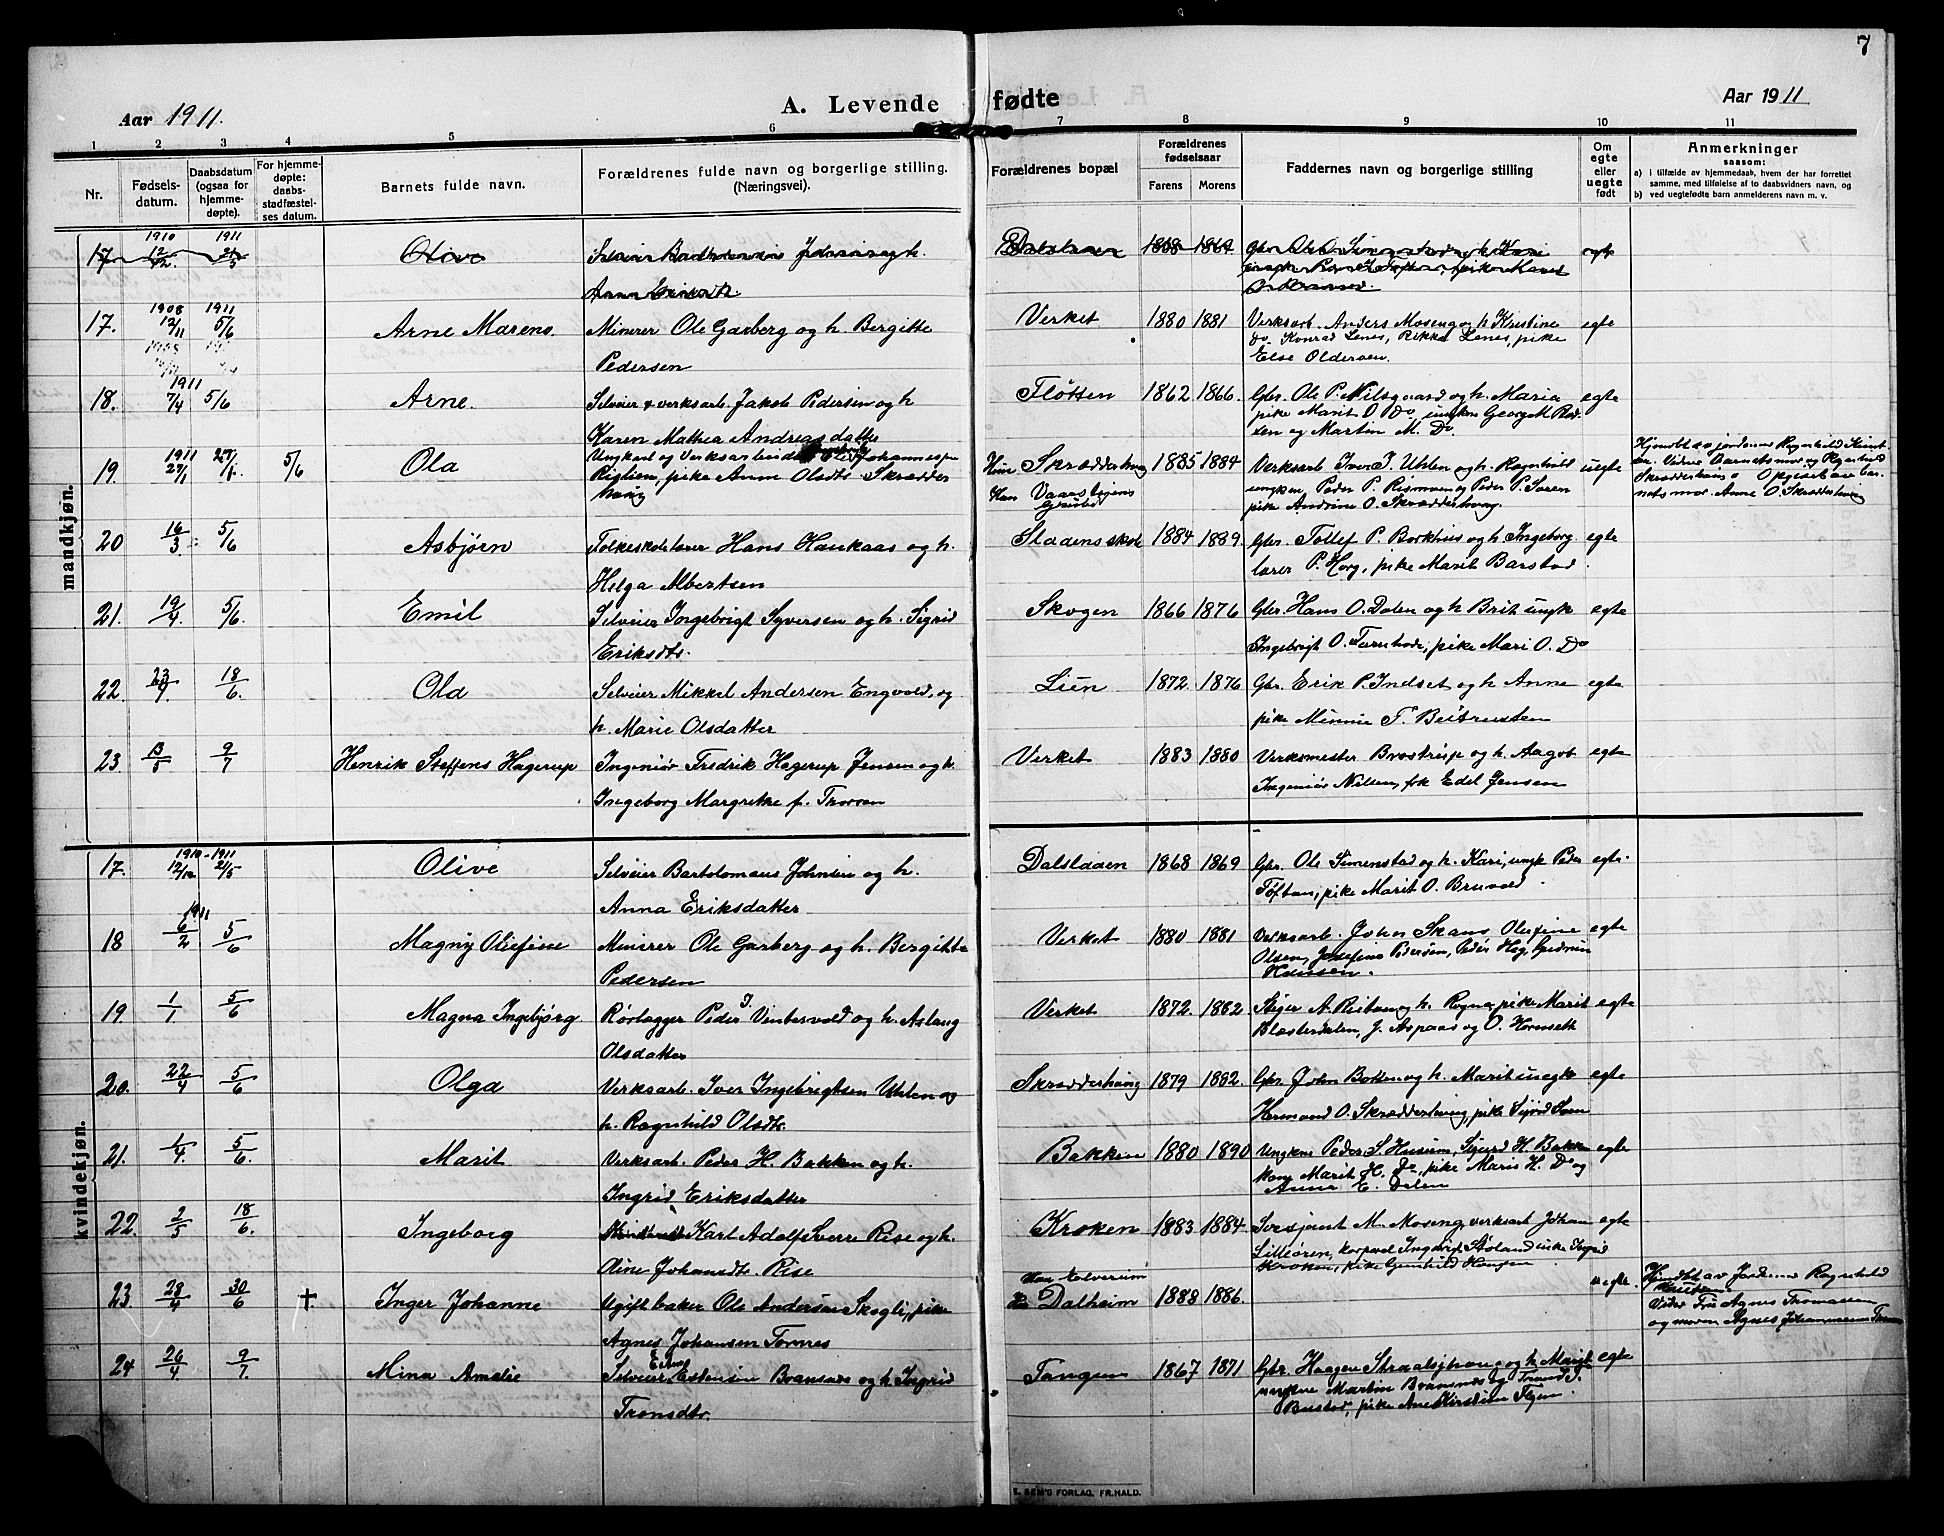 7
Aar 1911.
A. Levende fødte
Aar 1911
1 2 3 4 5 6 7 8 9 10 11
Nr.
Fødsels-
datum.
Daabsdatum
(ogsaa for
hjemme-
døpte).
For hjemme-
døpte:
daabs-
stadfæstel-
ses datum.
Barnets fulde navn.
Forældrenes fulde navn og borgerlige stilling.
(Næringsvei).
Forældrenes bopæl
Forældrenes
fødselsaar
Farens Morens
Faddernes navn og borgerlige stilling
Om
egte
eller
uegte
født
Anmerkninger
saasom:
a) i tilfælde av hjemmedaab, hvem der har forrettet
samme, med tilføielse af to daabsvidners navn, og
b) ved uegtefødte barn anmelderens navn m. v.
mandkjøn.
1910 1911
17 12/12. 21/5 Olive Selveier h. Dalslaaen 1868 1869 egte
Anna Eriksdtr.
1908 1911
17. 12/11 5/6 Arne Marens. Minerer Ole Garberg og h. Bergitte Verket 1880 1881 Verksarb. Anders Moseng og h Kristine egte
Pedersen Do. Konrad Lenes, Rikka Lenes, pike
Else Olderøen.
1911
18. 7/4 5/6 Arne. Selveier & verksarb. Jakob Pedersen og h Fløtten 1862 1866. Gbr. Ole P. Nilsgaard og h. Maria egte
Karen Mathea Andreasdatter pike Marit O Do, ungkar Georg M. 
og Martin M. Do.
1911
19. 27/1 27/1. 5/6 Ola Ungkarl og Verksarbeider Johannesen Hun Skrædderhaug 1885 1884 Verksarb Iver I. Uhlen og h. Ragnhild uegte
pike Anne Olsdtr Skrædder Han
haug ungkar Peder P. og Peder P.
pike Andrine O. Skrædderhaug.
Hjemdbt av jordemor Ragnhild
Vidne Barnets mor og Ragnhild
Skrædderhaug. Opgit av bar-
nets mor. Anne O. Skrædderhaug
20 16/3 5/6 Asbjørn Folkeskolelærer Hans Haukaas og h. Stadens skole 1884 1889. Gbr. Tollef P. Borkhus og h Ingeborg egte
Helga Albertsen lærer P. Horg, pike Marit Barstad
21. 19/4. 5/6. Emil Selveier Ingebrigt Syversen og h. Sigrid Skogen 1866 1876 Gbr. Hans O. Dalen og h Brit ungk egte
Eriksdtr. Ingebrigt O. pike Mari O. Do
22. 23/4. 18/6. Ola Selveier Mikkel Andersen Engvold, og Lien 1872. 1876 Gbr. Erik P. Indset og h Anne egte
h. Marie Olsdatter pike Minnie T.
23. 13/5 9/7 Henrik Steffens Hagerup Ingeniør Fredrik Hagerup Jensen og h. Verket 1883 1880 Verksmester Brostrup og h. Aagot egte
Ingeborg Margrethe f. Thoresen Ingeniør Nilsen, frk Edel Jensen
kvindekjøn.
1910-1911
17. 12/12 21/5 Olive Selveier Bartolomæus Johnsen og h. Dalslaaen 1868 1869 Gbr. Ole Simenstad og h. Kari, ungk Peder egte.
Anna Eriksdatter Toftan, pike Marit O. Bruvold
1911
18 6/2 5/6 Magny Olefine Minerer Ole Garberg og h. Bergitte Verket 1880 1881 Verksarb. Johan Skans Olufine egte
Pedersen Olsen, Josefine Pedersen, Peder Hag, Gudrun
Hansen.
19 1/1 5/6 Magna Ingebjørg Rørlægger Peder J. Vintervold og h. Aslaug Verket 1872. 1882 Stiger A. og h. Ragna, pike Marit egte
Olsdatter Blæsterdalen, J. Aspaas og O. Hornseth
20. 22/4 5/6 Olga Verksarb. Iver Ingebrigtsen Uhlen og Skrædderhaug 1879 1882. Gbr. John Bakken og h. Marit ungk egte
h. Ragnhild Olsdtr Hermand O. Skrædderhaug, pike
21. 1/4. 5/6. Marit Verksarb. Peder H. Bakken og h. Bakken 1880 1890 Ungkar Peder S. Husum, Sigurd H. Bakken egte
Ingrid Eriksdatter Marit H. Do, pike Maris H. Do og
Anna E. Dalen
22. 2/5 18/6. Ingeborg Karl Adolf Sverre Rise og h. Kroken 1883 1884. Sersjant M. Moseng, verksarb Johan egte
Oline Johansdtr. Rise Lilleøren, korporal Ingebrigt pike Ingrid
Kroken, pike Gunhild Haugen
23. 28/4 30/6 † Inger Johanne Ugift baker Ole Andersen Skogli, pike Han Elverum uegte.
Agnes Johansen Tornes Hun Dalheim 1888 1886.
Hjemdbt av Jordemor Ragnhild
Vidner Fru Agnes Thomassen
og moren Agnes Johannesen
24 26/4 9/7. Mina Amalie Selveier Estensen og h. Ingrid Tangen 1867 1871 Gbr. Haagen og h. Marit egte
Tronsdtr. Martin og Trond I.
pike Ane Kirstine
E. SEM'S FORLAG, FR.HALD.